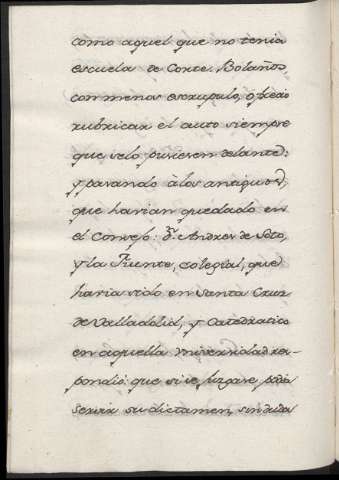 como aquel que no tenia
escuela de Corte. Bolaños,
con menos escrupulo, ofrecio
rubricar el auto siempre
que selo pusiesen delante:
y pasando à los antiguos,
que havian quedado en
el Consejo: Dn. Andres de Soto,
y la Fuente, colegial, que
havia sido en Santa Cruz
de Valladolid, y Catedratico
en aquella Universidad res-
pondió: que si se juzgase podia
servir su dictamen, sin duda